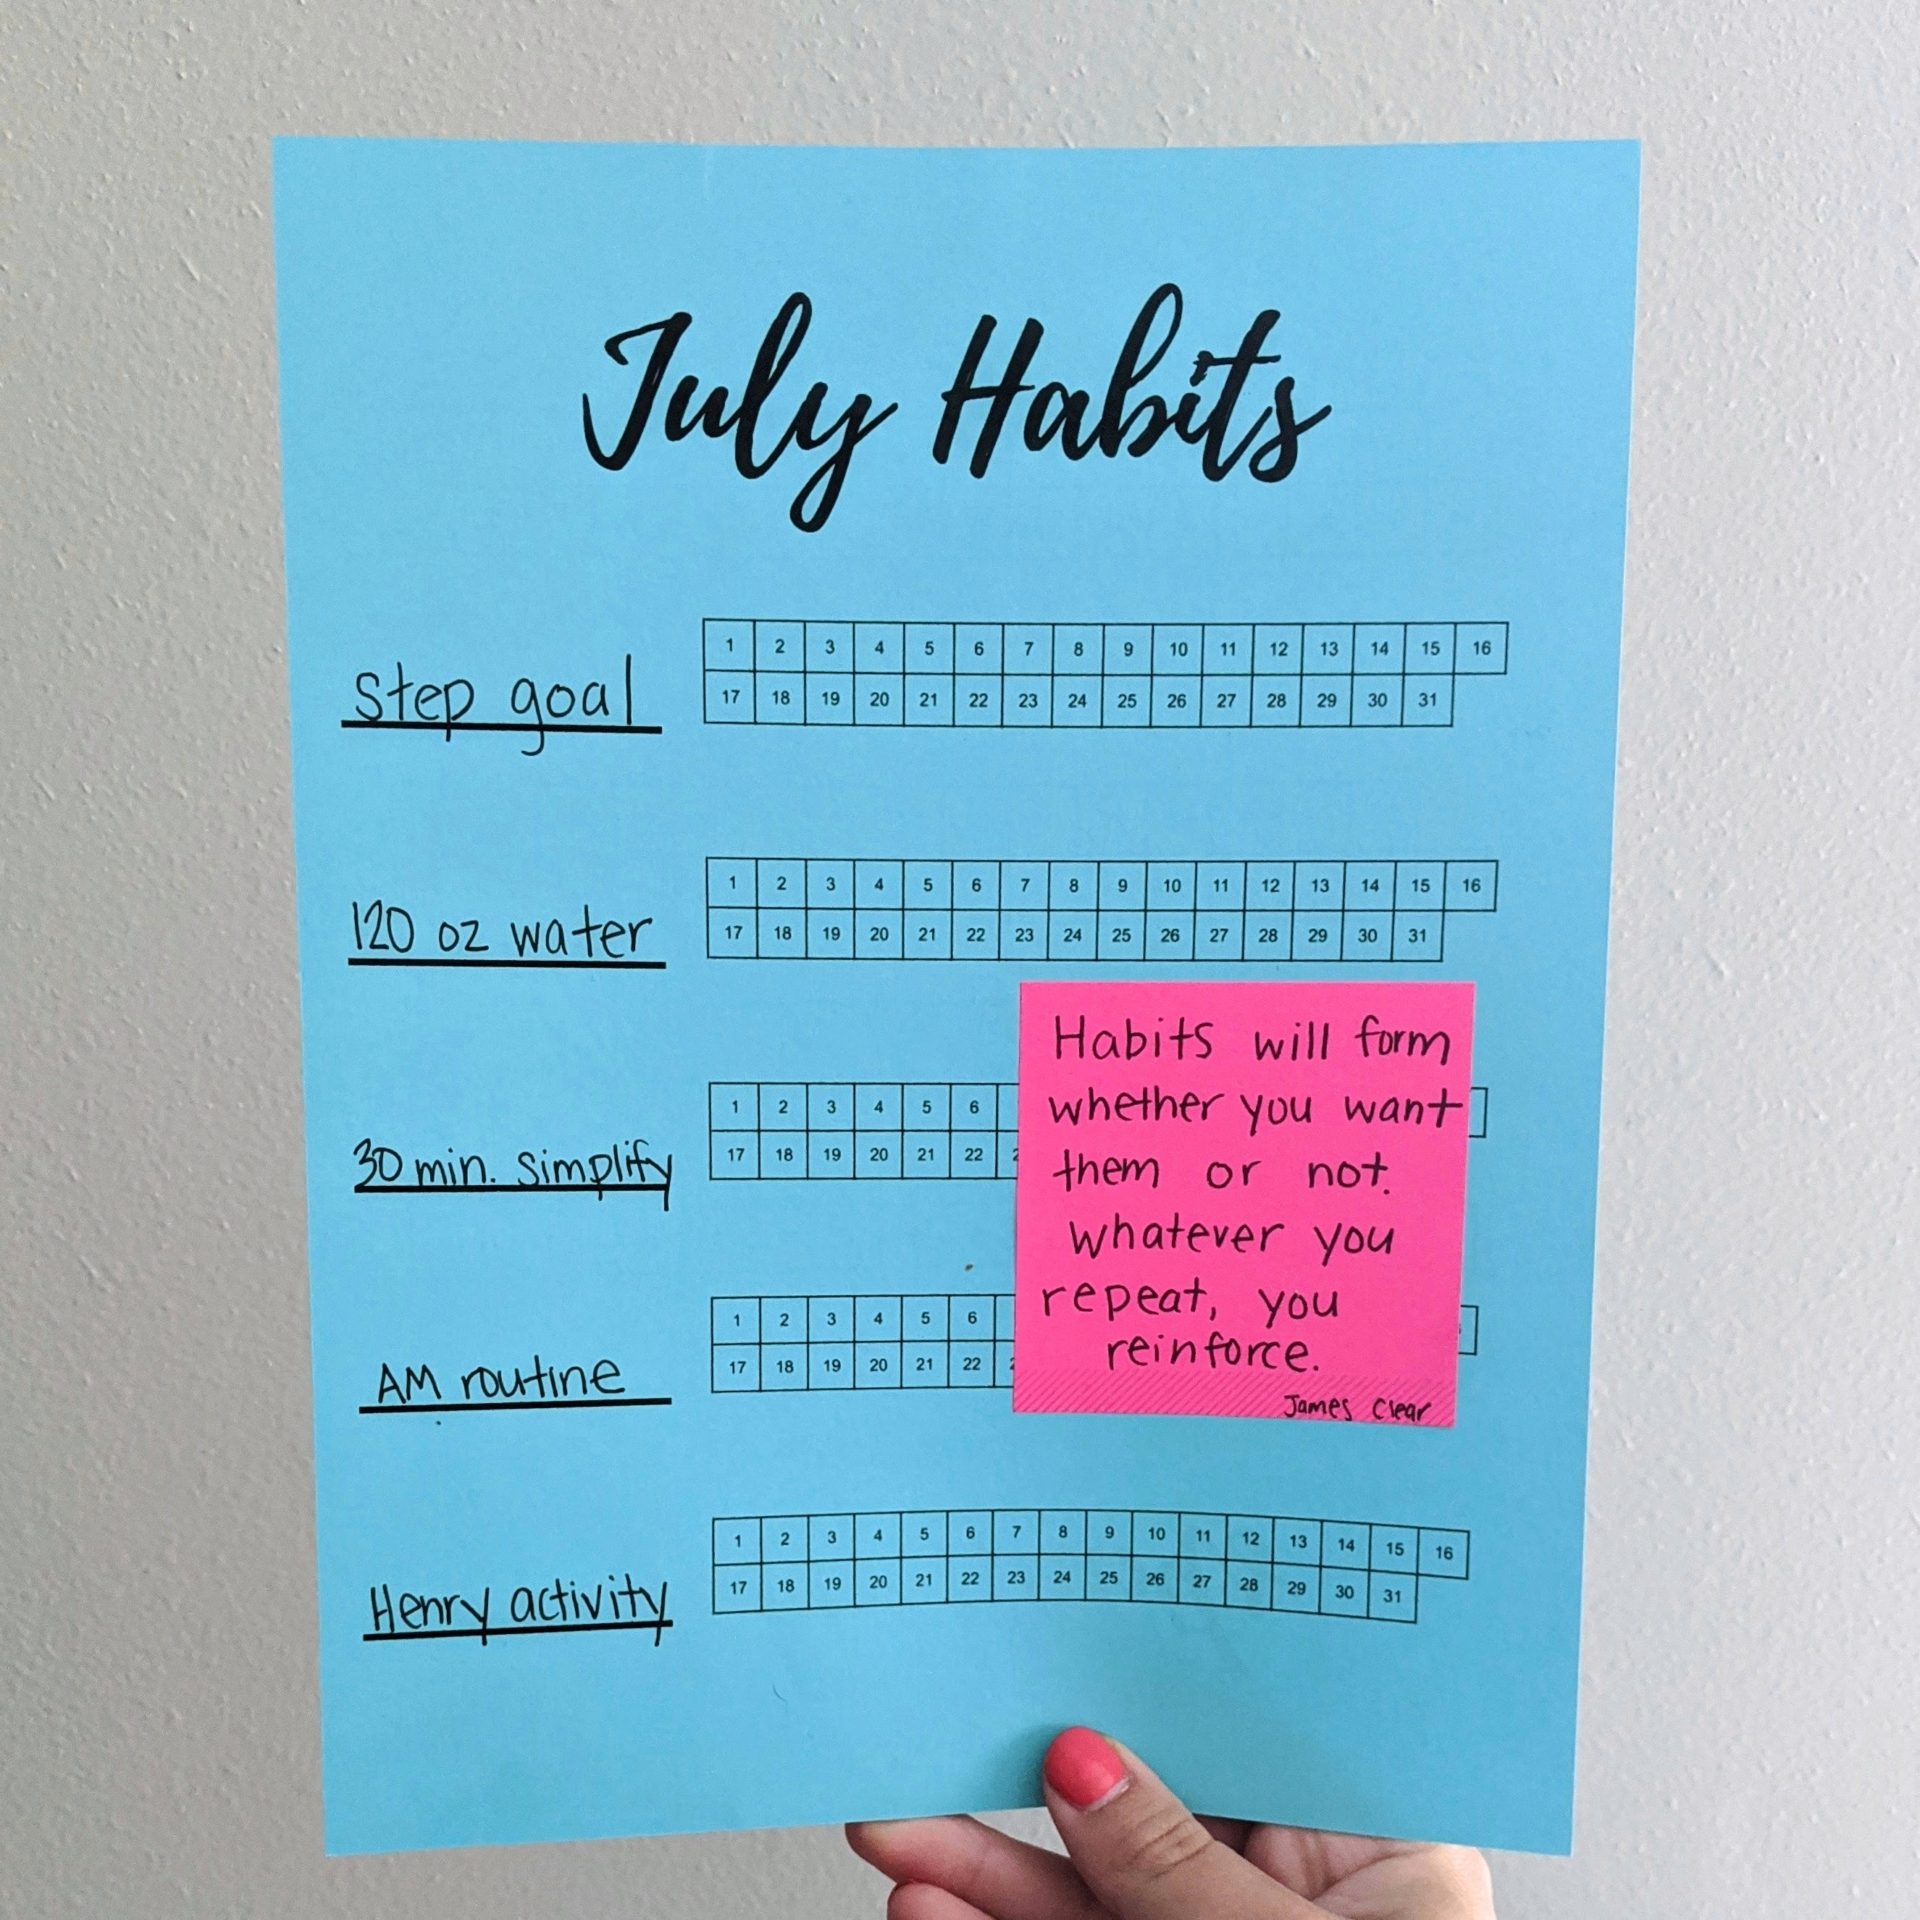 July Habits
Step goal
1 2 3 4 5 6 7 8 9 10 11 12 13 14 15 16
17 18 19 20 21 22 23 24 25 26 27 28 29 30 31
120 oz water
1 2 3 4 5 6 7 8 9 10 11 12 13 14 15 16
17 18 19 20 21 22 23 24 25 26 27 28 29 30 31
30 min. simplify
1 2 3 4 5 6
17 18 19 20 21 22
AM routine
1 2 3 4 5 6
17 18 19 20 21 22
Habits will form
whether you want
them or not.
Whatever you
repeat, you
reinforce.
James Clear
Henry activity
1 2 3 4 5 6 7 8 9 10 11 12 13 14 15 16
17 18 19 20 21 22 23 24 25 26 27 28 29 30 31